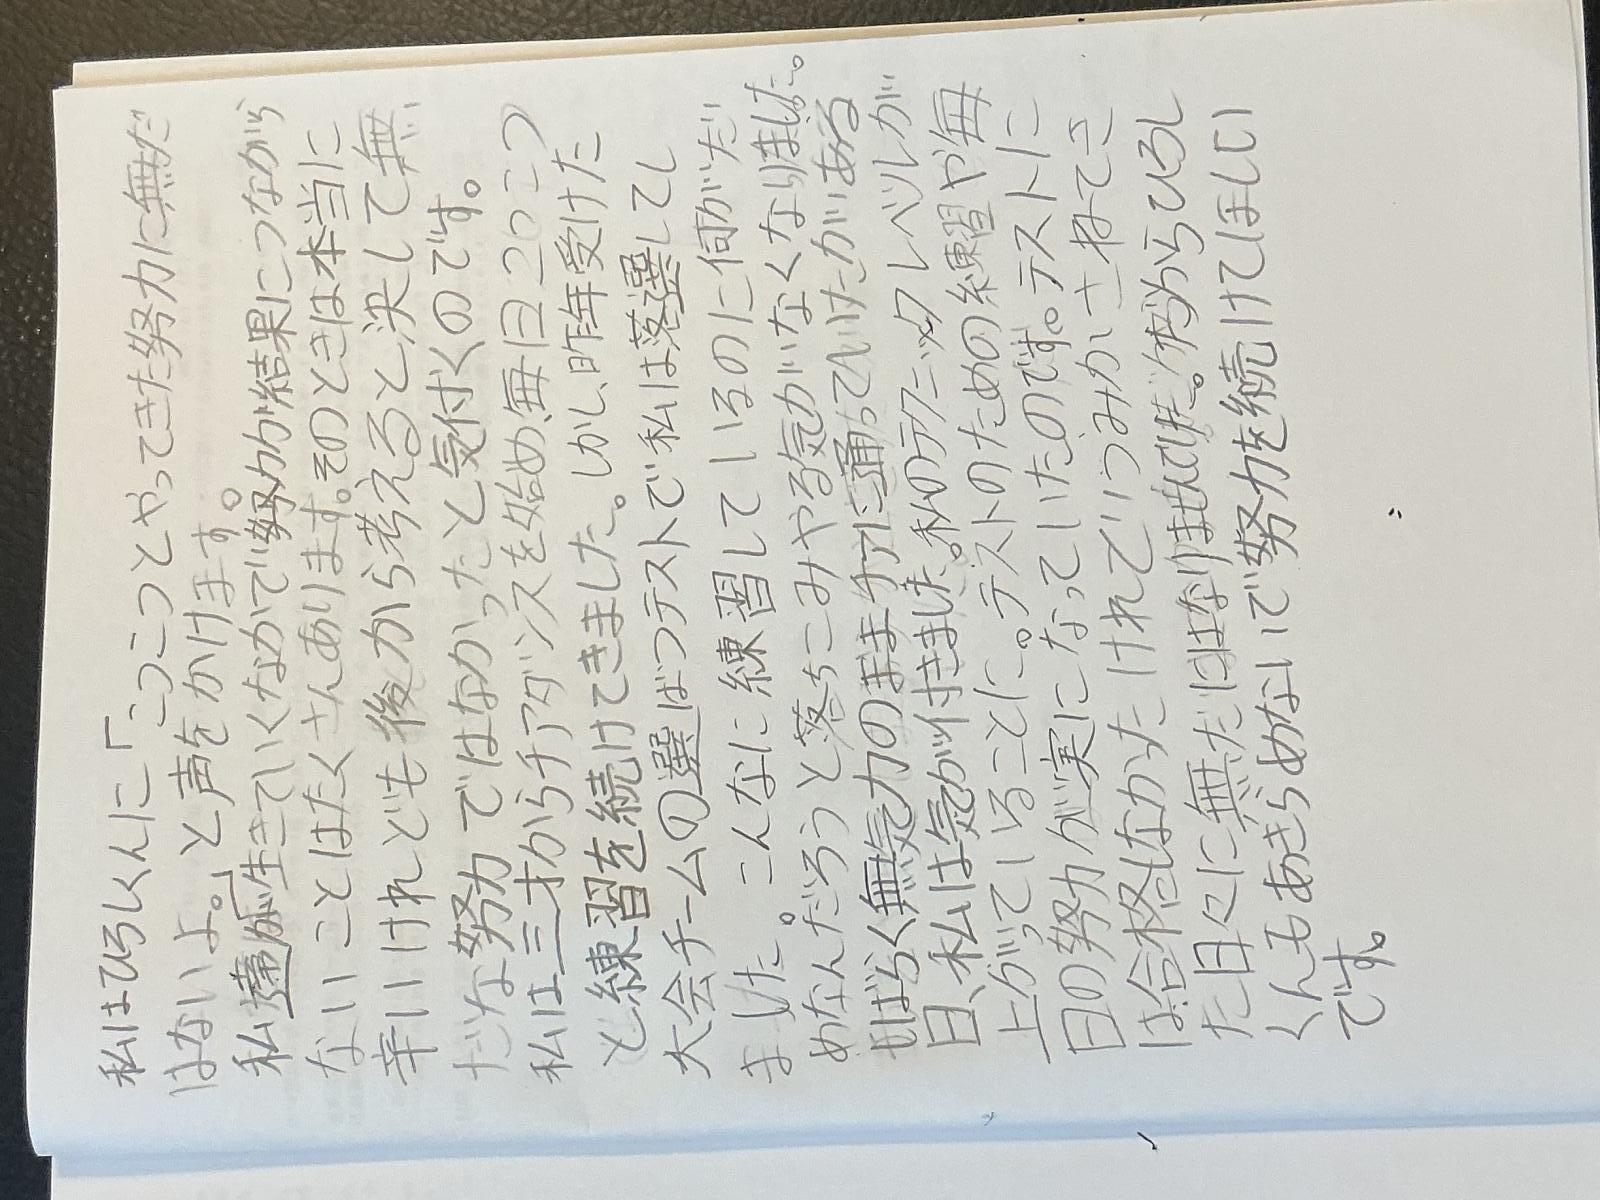 私はひろしくんに「こつこつとやってきた努力に無だ
はないよ。」と声をかけます。
私達が生きていくなかで努力が結果につながら
ないことはたくさんあります。そのときは本当に
辛いけれども後から考えると決して無
だな努力ではなかったと気付くのです。
私は三才からチアダンスを始め、毎日こつこつ
と練習を続けてきました。しかし、昨年受けた
大会チームの選ばつテストで私は落選してし
ました。こんなに練習しているのに何がだ
めなんだろうと落ちこみやる気がなくなりました。
しばらく無気力のままチアに通っていけたがある
日、私は気が付きました。私のテクニックレベルが
上がっていることに。テストのための練習や毎
日の努力が実になっていたのです。テストに
は合格しなかったけれどつみかさねてき
た日々に無だはなりませんでした。だからひろし
くんもあきらめないで努力を続けてほしい
です。